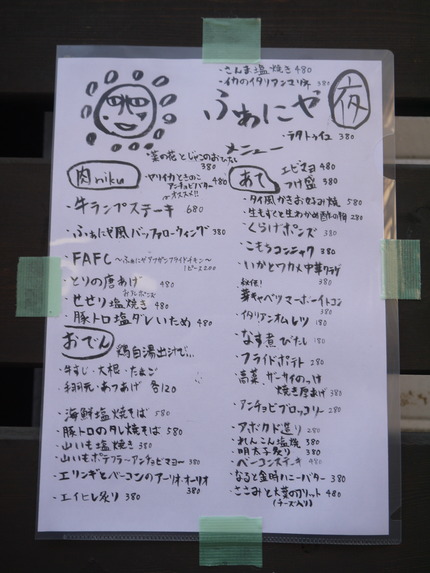 ・さんま塩焼き 480
・イカのイタリアンマリネ 380
ふぁにや 夜
・ラタトゥイユ 380
メニュー
・菜の花とじゃこのおひたし
380
肉 niku
・ヤリイカときのこ
アンチョビバター 480
オススメ!!
・牛ランプステーキ 680
・ふぁにや風バッファローウィング 380
・FAFC
1ピース200
・とりの唐あげ
おろしポンズ
・せせり塩焼き 480
・豚トロ塩ダレいため 480
おでん
鶏白湯出汁で…
・牛すじ・大根・たまご
・手羽元・あつあげ 各120
・海鮮塩焼そば 580
・豚トロのタレ焼そば 580
・山いも塩焼き 350
・山いもポテフラ〜アンチョビマヨー 380
・エリンギとベーコンのアーリオ・オーリオ
380
・エイヒレ炙り 380
あて
エビマヨ 480
つけ盛 380
・タイ風かきおこのみ焼 580
・生もずくと生わかめ酢の物 280
・くらげポンズ 380
・こもちコンニャク 380
・いかとワカメ中華サラダ
380
秘伝!
イタリアンオムレツ 180
・なす煮びたし 180
・フライドポテト 280
・高菜、ザーサイのっけ
焼き厚あげ 380
・アンチョビブロッコリー 280
・アボカド造り 280
・れんこん塩焼 380
・明太子炙り 380
・ベーコンステーキ 480
・なると金時ハニーバター 380
・ささみと大葉のフリット 480
(チーズ入り)